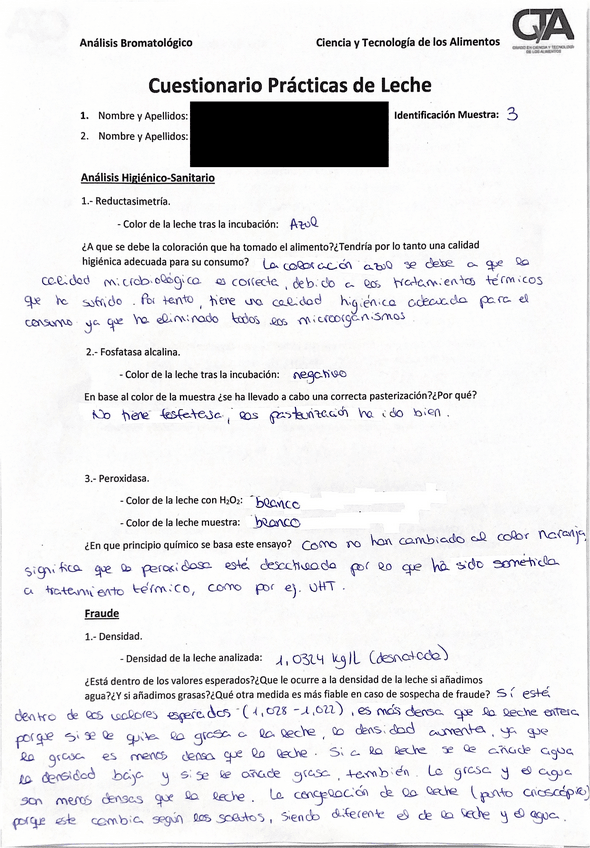 Análisis Bromatológico Ciencia y Tecnología de los Alimentos
CTA
GRADO EN CIENCIA Y TECNOLOGÍA
DE LOS ALIMENTOS
Cuestionario Prácticas de Leche
1. Nombre y Apellidos: Identificación Muestra: 3
2. Nombre y Apellidos:
Análisis Higiénico-Sanitario
1.- Reductasimetría.
- Color de la leche tras la incubación: Azul
¿A que se debe la coloración que ha tomado el alimento?¿Tendría por lo tanto una calidad
higiénica adecuada para su consumo? La coloración azul se debe a que la
calidad microbiológica es correcta, debido a los tratamientos térmicos
que ha sufrido. Por tanto, tiene una calidad higiénica adecuada para el
consumo ya que ha eliminado todos los microorganismos.
2.- Fosfatasa alcalina.
- Color de la leche tras la incubación: negativo
En base al color de la muestra ¿se ha llevado a cabo una correcta pasterización?¿Por qué?
No tiene fosfatasa, las pasterización ha ido bien.
3.- Peroxidasa.
- Color de la leche con H₂O₂: blanco
- Color de la leche muestra: blanco
¿En que principio químico se basa este ensayo? Como no han cambiado al color naranja,
significa que la peroxidasa está desactivada por lo que ha sido sometida
a tratamiento térmico, como por ej. UHT.
Fraude
1.- Densidad.
- Densidad de la leche analizada: 1,0324 kg/L (desnatada)
¿Está dentro de los valores esperados?¿Que le ocurre a la densidad de la leche si añadimos
agua?¿Y si añadimos grasas?¿Qué otra medida es más fiable en caso de sospecha de fraude? Sí está
dentro de los valores esperados (1,028 - 1,022), es más densa que la leche entera
porque si se le quita la grasa a la leche, la densidad aumenta, ya que
la grasa es menos densa que la leche. Si a la leche se le añade agua
la densidad baja y si se le añade grasa, también. La grasa y el agua
son menos densas que la leche. La congelación de la leche (punto crioscópico)
porque este cambia según los solutos, siendo diferente el de la leche y el agua.